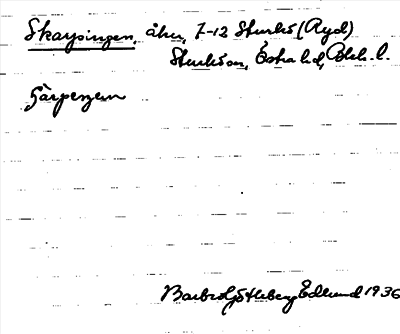 Skarpingen, åker, 7-12 Sturkö (Ryd)
Sturkö sn, Östra hd, Blek. l.
Barbro Göthberg Edlund 1936